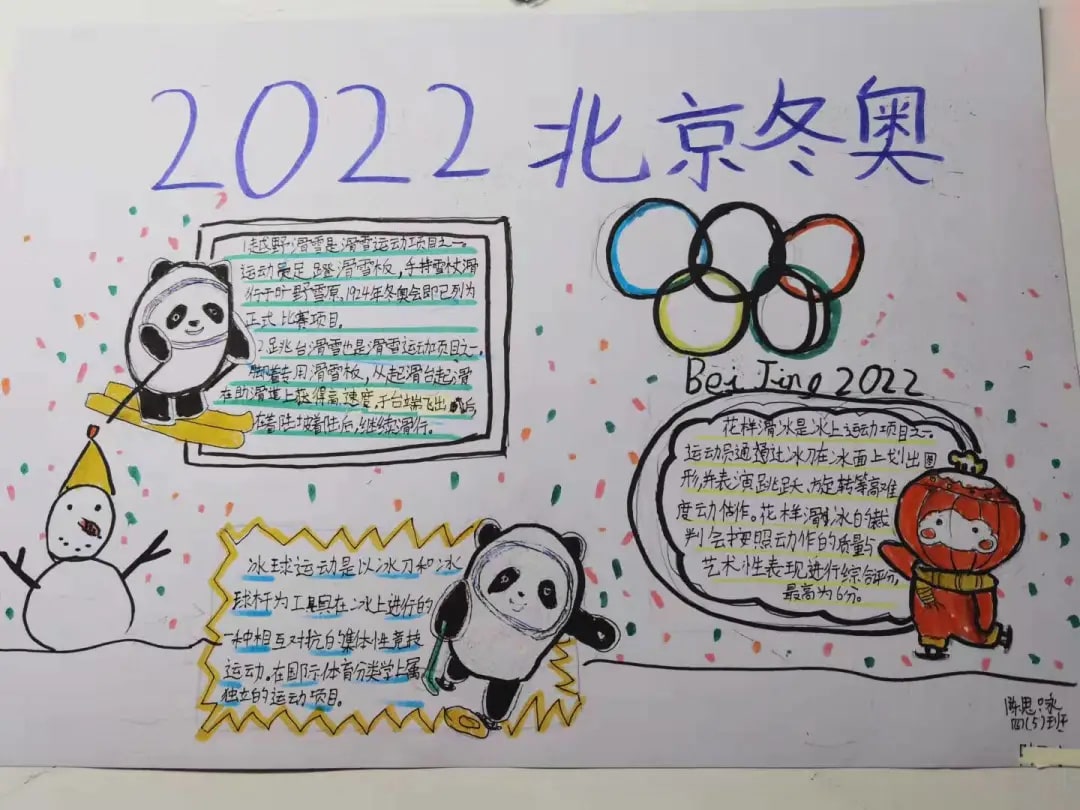 2022北京冬奥
1.越野滑雪是滑雪运动项目之一。
运动员足蹬滑雪板，手持雪杖滑
行于旷野雪原。1924年冬奥会即已列为
正式比赛项目。
2.跳台滑雪也是滑雪运动项目之一。
脚着专用滑雪板，从起滑台起滑
在助滑道上获得高速度，于台端飞出后，
在着陆坡着陆后，继续滑行。
Bei Jing 2022
花样滑冰是冰上运动项目之一。
运动员通过冰刀在冰面上划出图
形，并表演跳跃、旋转等高难
度动作。花样滑冰的裁
判会按照动作的质量与
艺术性表现进行综合评分，
最高为6分。
冰球运动是以冰刀和冰
球杆为工具在冰上进行的
一种相互对抗的集体性竞技
运动。在国际体育分类学上属
独立的运动项目。
陈思咏
四(5)班